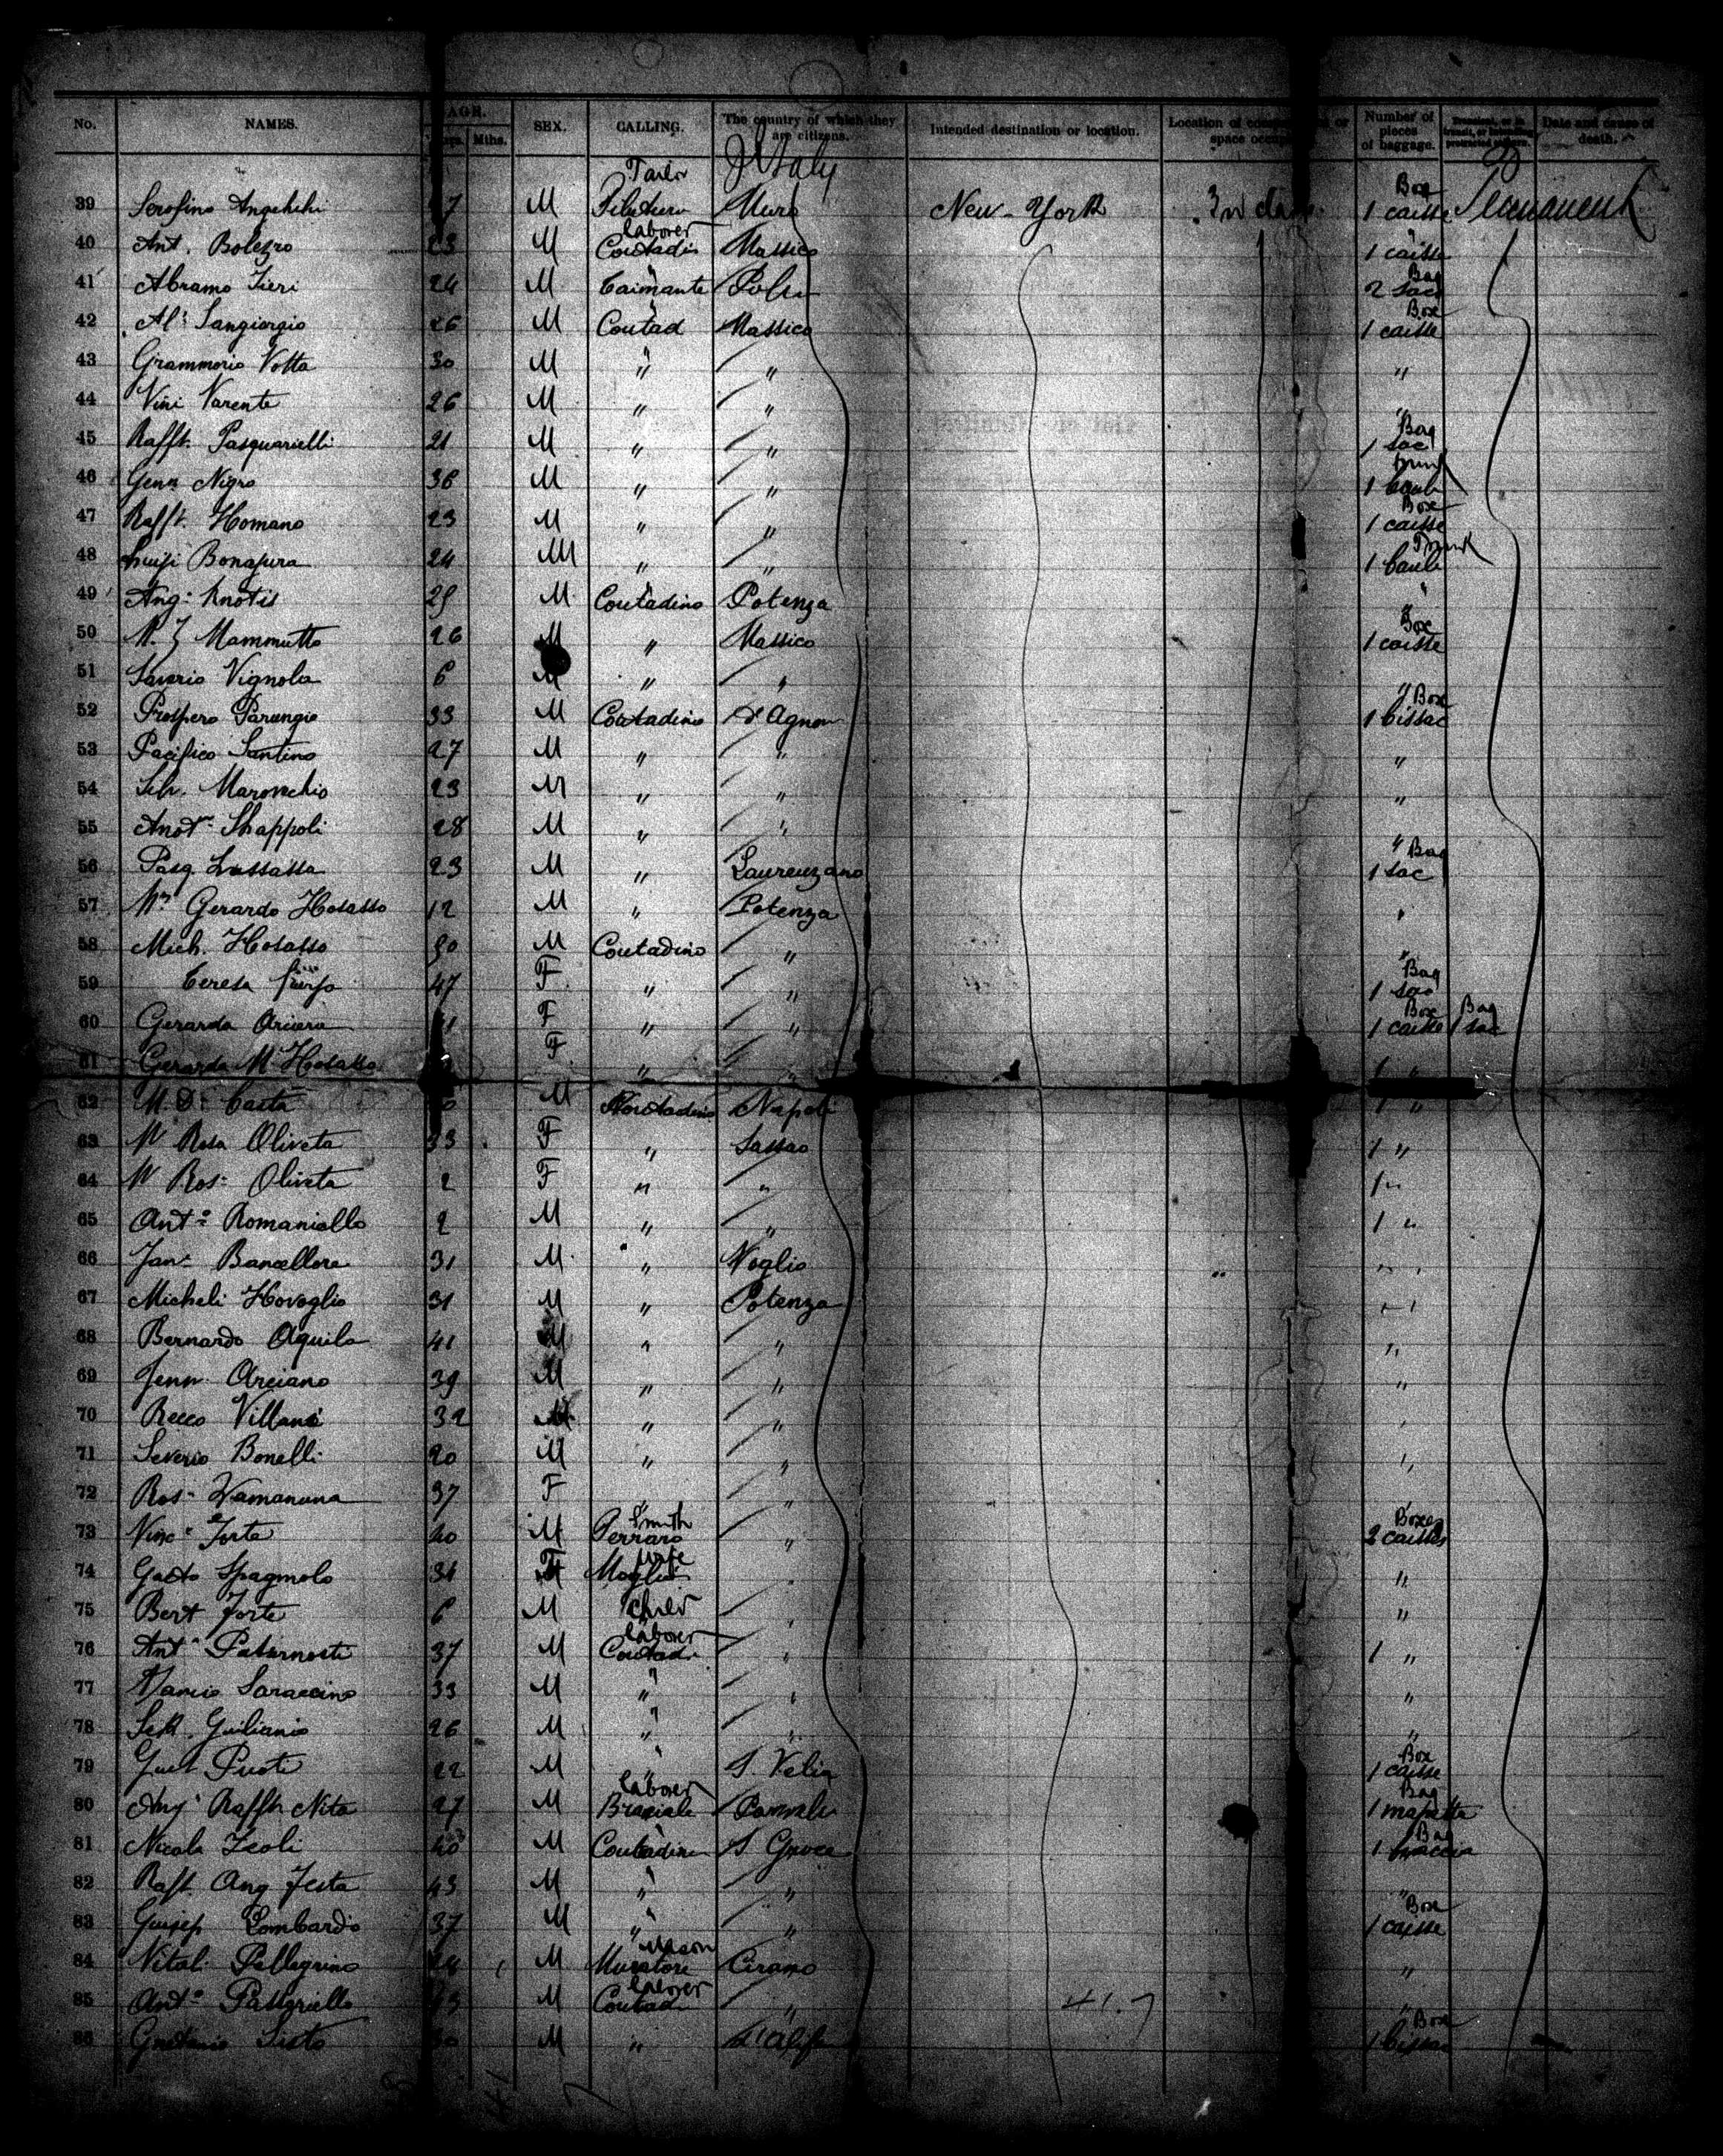 No. NAMES. AGE. Yrs. Mths. SEX. CALLING. The country of which they are citizens. Intended destination or location. Location of compartment or space occupied Number of pieces of baggage. Transient, or in transit, or intending protracted sojourn. Date and cause of death.
Tailor Italy Box
39 Serofino M Muro New-York 3rd class 1 caisse Permanent
laborer "
40 Ant. Bolezzo 23 M Contadin Massico 1 caisse
" Bag
41 Abramo Fieri 24 M 2 sacs
" Box
42 Al: Sangiorgio 26 M Contad Massico 1 caisse
43 Grammorio Votta 30 M " " "
44 Vini Varente 26 M " " "
Bag
45 Rafft. Pasquarielli 21 M " " 1 sac
Trunk
46 Genn Nigro 36 M " " 1 baule
Box
47 Rafft. Homano 23 M " " 1 caisse
Trunk
48 Luigi Bonafura 24 M " " 1 baule
49 Ang: Knotis 29 M Contadino Potenza "
Box
50 M. Mammutto 26 M " Massico 1 caisse
51 Saverio Vignola 6 M " " "
Box
52 Prospero Parungio 33 M Contadino d'Agnon 1 bissac
53 Pacifico Santino 27 M " " "
54 Maronchio 23 M " " "
55 Shappoli 28 M " " "
Bag
56 Pasq. Lussassa 23 M " Laurenzano 1 sac
57 Gerardo Hosasso 12 M " Potenza "
58 Mich. Hosasso M Contadino " "
Bag
59 Ceresa 47 F " " 1 sac
Box Bag
60 Gerarda F " " 1 caisse 1 sac
61 Gerarda M Hosasso F " " 1 "
62 M. Casta M Contadino Napoli 1 "
63 M Rosa Oliveta 33 F " Sassao 1 "
64 M Ros: Oliveta 2 F " " 1 "
65 Ant: Romaniello 2 M " " 1 "
66 Jan: Bancellore 31 M " Noglio " "
67 Micheli Hovoglio 31 M " Potenza " "
68 Bernardo Aquila 41 M " " "
69 Jenn. Arciano 39 M " " "
70 Rocco Villani 32 M " " "
71 Severio Bonelli 20 M " " "
72 Ros: Vamanuna 37 F " " "
Smith Boxes
73 Vinc: Forte 40 M Ferraro " 2 caisses
wife
74 Gaeto Spagnolo 34 F Moglie " "
75 Bert Forte 6 M Child " "
laborer
76 Ant: Paternoste 37 M Contadi " 1 "
77 Saraceino 33 M " " "
78 Giulianio 26 M " " "
Box
79 Puoti 22 M " S. Velia 1 caisse
laborer Bag
80 Ang: Raffle Nita 27 M Braciale 1
Bag
81 Nicola Zeoli 40 M Contadin S. Groce 1
82 Raft. Ang Festa 43 M " " "
Box
83 Guisep Lombardo 37 M " " 1 caisse
Mason
84 Vitali Pellegrino 24 M Muratore Cirano "
laborer
85 Ant: Passariello 43 M Contadi " 41.7 "
Box
86 Gaetanio Sisto 30 M " d'Alifan 1 bissac